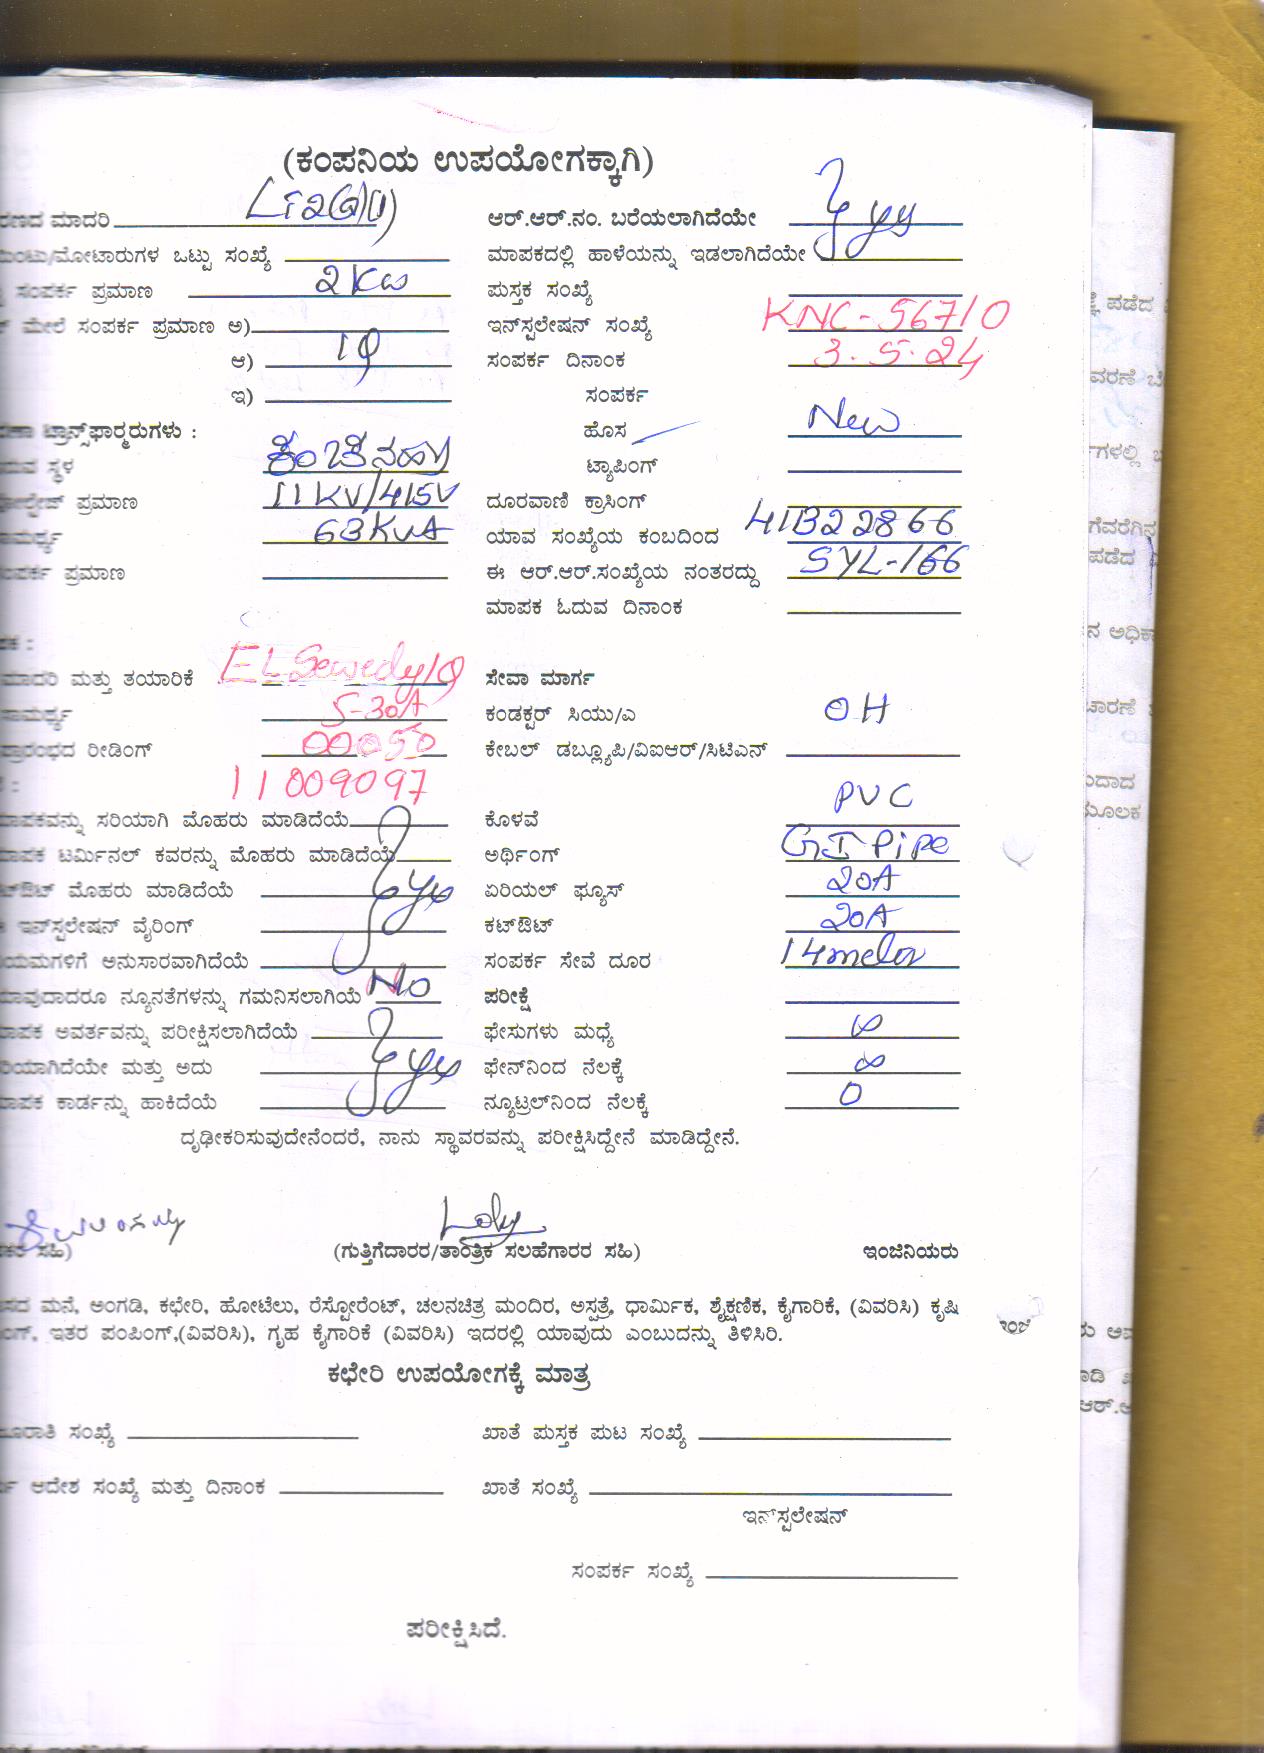 (ಕಂಪನಿಯ ಉಪಯೋಗಕ್ಕಾಗಿ)
ರಣದ ಮಾದರಿ LT2(a)(i) ಆರ್.ಆರ್.ನಂ. ಬರೆಯಲಾಗಿದೆಯೇ yes
ಯಿಂಟು/ಮೋಟಾರುಗಳ ಒಟ್ಟು ಸಂಖ್ಯೆ ಮಾಪಕದಲ್ಲಿ ಹಾಳೆಯನ್ನು ಇಡಲಾಗಿದೆಯೇ
ಸಂಪರ್ಕ ಪ್ರಮಾಣ 2Kw ಪುಸ್ತಕ ಸಂಖ್ಯೆ
ಮೇಲೆ ಸಂಪರ್ಕ ಪ್ರಮಾಣ ಅ) ಇನ್‌ಸ್ಟಲೇಷನ್ ಸಂಖ್ಯೆ KNC-56710
ಆ) 1φ ಸಂಪರ್ಕ ದಿನಾಂಕ 3.5.24
ಇ) ಸಂಪರ್ಕ
ಟ್ರಾನ್ಸ್‌ಫಾರ್ಮರುಗಳು : ಹೊಸ New
ರುವ ಸ್ಥಳ ಕಂಚಿನಹಳ್ಳಿ ಟ್ಯಾಪಿಂಗ್
ವೋಲ್ಟೇಜ್ ಪ್ರಮಾಣ 11KV/415V ದೂರವಾಣಿ ಕ್ರಾಸಿಂಗ್
ಸಾಮರ್ಥ್ಯ 63KVA ಯಾವ ಸಂಖ್ಯೆಯ ಕಂಬದಿಂದ 41322866
ಸಂಪರ್ಕ ಪ್ರಮಾಣ ಈ ಆರ್.ಆರ್.ಸಂಖ್ಯೆಯ ನಂತರದ್ದು SYL-166
ಮಾಪಕ ಓದುವ ದಿನಾಂಕ
ಪಕ :
ಮಾದರಿ ಮತ್ತು ತಯಾರಿಕೆ EL Sewedy/1φ ಸೇವಾ ಮಾರ್ಗ
ಸಾಮರ್ಥ್ಯ 5-30A ಕಂಡಕ್ಟರ್ ಸಿಯು/ಎ OH
ಪ್ರಾರಂಭದ ರೀಡಿಂಗ್ 00050 ಕೇಬಲ್ ಡಬ್ಲ್ಯೂಪಿ/ವಿಐಆರ್/ಸಿಟಿಎನ್
11009097
ಮಾಪಕವನ್ನು ಸರಿಯಾಗಿ ಮೊಹರು ಮಾಡಿದೆಯೆ ಕೊಳವೆ PVC
ಮಾಪಕ ಟರ್ಮಿನಲ್ ಕವರನ್ನು ಮೊಹರು ಮಾಡಿದೆಯೆ ಅರ್ಥಿಂಗ್ GI Pipe
ಟ್‌ಔಟ್ ಮೊಹರು ಮಾಡಿದೆಯೆ yes ಏರಿಯಲ್ ಫ್ಯೂಸ್ 20A
ಇನ್‌ಸ್ಟಲೇಷನ್ ವೈರಿಂಗ್ ಕಟ್‌ಔಟ್ 20A
ಯಮಗಳಿಗೆ ಅನುಸಾರವಾಗಿದೆಯೆ ಸಂಪರ್ಕ ಸೇವೆ ದೂರ 14meter
ಯಾವುದಾದರೂ ನ್ಯೂನತೆಗಳನ್ನು ಗಮನಿಸಲಾಗಿಯೆ No ಪರೀಕ್ಷೆ
ಮಾಪಕ ಅವರ್ತವನ್ನು ಪರೀಕ್ಷಿಸಲಾಗಿದೆಯೆ ಫೇಸುಗಳು ಮಧ್ಯೆ ∞
ರಿಯಾಗಿದೆಯೇ ಮತ್ತು ಅದು yes ಫೇಸ್‌ನಿಂದ ನೆಲಕ್ಕೆ ∞
ಮಾಪಕ ಕಾರ್ಡನ್ನು ಹಾಕಿದೆಯೆ ನ್ಯೂಟ್ರಲ್‌ನಿಂದ ನೆಲಕ್ಕೆ 0
ದೃಢೀಕರಿಸುವುದೇನೆಂದರೆ, ನಾನು ಸ್ಥಾವರವನ್ನು ಪರೀಕ್ಷಿಸಿದ್ದೇನೆ ಮಾಡಿದ್ದೇನೆ.
ಸಹಿ) (ಗುತ್ತಿಗೆದಾರರ/ತಾಂತ್ರಿಕ ಸಲಹೆಗಾರರ ಸಹಿ) ಇಂಜಿನಿಯರು
ಸದ ಮನೆ, ಅಂಗಡಿ, ಕಛೇರಿ, ಹೋಟೆಲು, ರೆಸ್ಟೋರೆಂಟ್, ಚಲನಚಿತ್ರ ಮಂದಿರ, ಅಸ್ಪತ್ರೆ, ಧಾರ್ಮಿಕ, ಶೈಕ್ಷಣಿಕ, ಕೈಗಾರಿಕೆ, (ವಿವರಿಸಿ) ಕೃಷಿ
ಂಗ್, ಇತರ ಪಂಪಿಂಗ್,(ವಿವರಿಸಿ), ಗೃಹ ಕೈಗಾರಿಕೆ (ವಿವರಿಸಿ) ಇದರಲ್ಲಿ ಯಾವುದು ಎಂಬುದನ್ನು ತಿಳಿಸಿರಿ.
ಕಛೇರಿ ಉಪಯೋಗಕ್ಕೆ ಮಾತ್ರ
ಜೂರಾತಿ ಸಂಖ್ಯೆ ಖಾತೆ ಪುಸ್ತಕ ಪುಟ ಸಂಖ್ಯೆ
ಆದೇಶ ಸಂಖ್ಯೆ ಮತ್ತು ದಿನಾಂಕ ಖಾತೆ ಸಂಖ್ಯೆ
ಇನ್‌ಸ್ಟಲೇಷನ್
ಸಂಪರ್ಕ ಸಂಖ್ಯೆ
ಪರೀಕ್ಷಿಸಿದೆ.